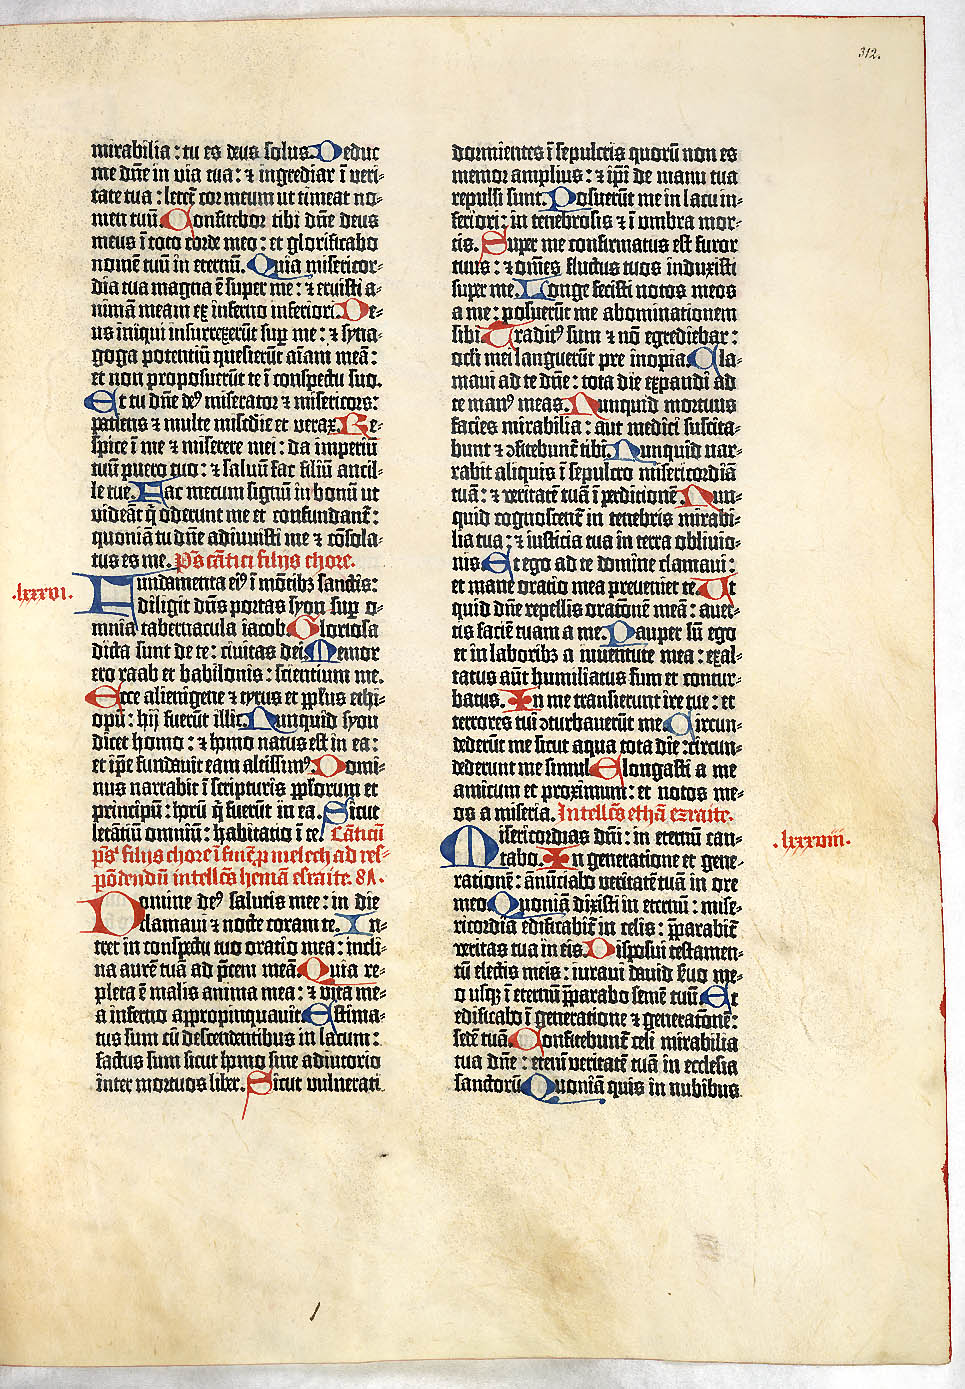 312.
mirabilia : tu es deus solus. Deduc
me dn̄e in via tua : ⁊ ingrediar ī veri-
tate tua : letet̄ cor meum ut timeat no-
men tuū. Confitebor tibi dn̄e deus
meus ī toto corde meo : et glorificabo
nomē tuū in eternū. Quia misericor-
dia tua magna ē super me : ⁊ eruisti a-
nimā meam ex inferno inferiori. De-
us iniqui insurrexerūt sup̄ me : ⁊ syna-
goga potentiū quesierūt aīam meā :
et non proposuerūt te ī conspectu suo.
Et tu dn̄e deꝰ miserator ⁊ misericors :
patiens ⁊ multe mīsc̄die et verax. Re-
spice ī me ⁊ miserere mei : da imperiū
tuū puero tuo : ⁊ saluū fac filiū ancil-
le tue. Fac mecum signū in bonū ut
videāt q̄ oderunt me et confundant̄ :
quoniā tu dn̄e adiuuisti me ⁊ cōsola-
tus es me. Pō̄s cātici filijs chore.
.lxxxvi.
Fundamenta eiꝰ ī mōtibꝫ sanctis :
diligit dn̄s portas syon sup̄ o-
mnia tabernacula iacob. Gloriosa
dicta sunt de te : civitas dei. Memor
ero raab et babilonis : scientium me.
Ecce alienigene ⁊ tyrus et pp̄lus ethi-
opū : hij fuerūt illic. Nunquid syon
dicet homo : ⁊ homo natus est in ea :
et ip̄e fundavit eam altissimꝰ. Domi-
nus narrabit ī scripturis pp̄lorum et
principū : horū q̄ fuerūt in ea. Sicut
letātiū omniū : habitatio ī te. Cāticū
pō̄s filijs chore ī finē p̄ melech ad res-
pōdendū intellc̄s hemā esraite. 8A.
Domine deꝰ salutis mee : in die
clamavi ⁊ nocte coram te. In-
tret in conspectu tuo oratio mea : incli-
na aurē tuā ad p̄cem meā. Quia re-
pleta ē malis anima mea : ⁊ vita me-
a inferno appropinquavit. Estima-
tus sum cū descendentibus in lacum :
factus sum sicut homo sine adiutorio
inter mortuos liber. Sicut vulnerati
dormientes ī sepulcris quorū non es
memor amplius : ⁊ ip̄i de manu tua
repulsi sunt. Posuerūt me in lacu in-
feriori : in tenebrosis ⁊ ī umbra mor-
tis. Super me confirmatus est furor
tuus : ⁊ om̄es fluctus tuos induxisti
super me. Longe fecisti notos meos
a me : posuerūt me abominationem
sibi. Traditꝰ sum ⁊ nō egrediebar :
oculi mei languerūt pre inopia. Cla-
mavi ad te dn̄e : tota die expandi ad
te manꝰ meas. Nunquid mortuus
facies mirabilia : aut medici suscita-
bunt ⁊ ꝯfitebunt̄ tibi. Nunquid nar-
rabit aliquis ī sepulcro misericordiā
tuā : ⁊ veritatē tuā ī perditionē. Nun-
quid cognoscent̄ in tenebris mirabi-
lia tua : ⁊ iusticia tua in terra oblivio-
nis. Et ego ad te domine clamavi :
et mane oratio mea preveniet te. Ut
quid dn̄e repellis oratōnem meā : aver-
tis faciē tuam a me. Pauper sū ego
et in laboribꝫ a iuventute mea : exal-
tatus aūt humiliatus sum et contur-
batus. In me transierunt ire tue : et
terrores tui ꝯturbaverūt me. Circun-
dederūt me sicut aqua tota die : circun-
dederunt me simul. Elongasti a me
amicum et proximum : et notos me-
os a miseria. Intellc̄s ethā ezraite.
.lxxxviii.
Misericordias dn̄i : in eternū can-
tabo. In generatione et gene-
rationē : ānūciabo veritatē tuā in ore
meo. Quoniā dixisti in eternū : mise-
ricordia edificabit̄ in celis : p̄parabit̄
veritas tua in eis. Disposui testamen-
tū electis meis : iuravi david s̄uo me-
o usqꝫ ī eternū p̄parabo semē tuū. Et
edificabo ī generatione ⁊ generatōnē :
sedē tuā. Confitebunt̄ celi mirabilia
tua dn̄e : etenī veritatē tuā in ecclesia
sanctorū. Quoniā quis in nubibus